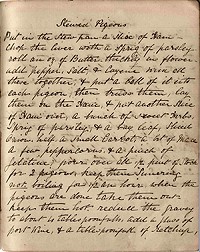 Stewed Pigeons
Put in the stew pan a Slice of Ham
Chop the liver with a Sprig of parsley
roll an oz of Butter thickly in flower
add pepper, Salt & Cayenne mix all
these together, & put a ball of it into
each pigeon, then truss them, lay
them on the Ham, & put another Slice
of Ham over, a bunch of Sweet herbs,
Sprig of parsley & a bay leaf, Sliced
Onion half a Small Carrot, a bit of Mace
a few peppercorns & a pinch of
gelatine, pour over ½ a pint of
for 2 pigeons, keep them Simmering
not boiling for an hour, when the
pigeons are done take them out
keep them hot reduce the gravy
to about 12 tablespoonfuls, add a glass of
port Wine, & a tablespoonful of Ketchup